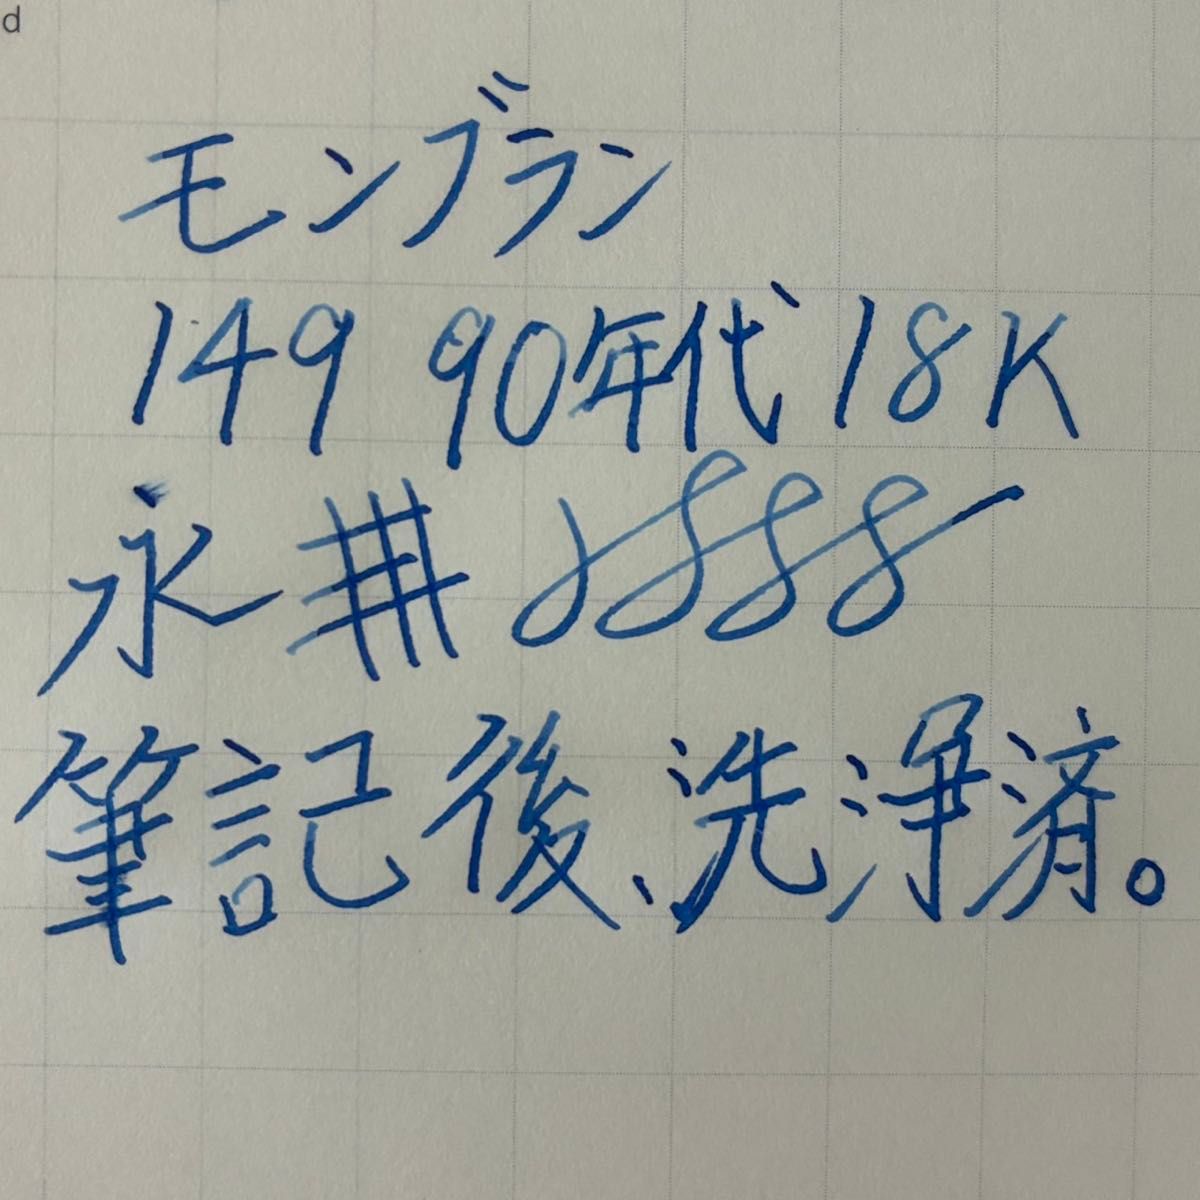 d
モンブラン
149 90年代 18K
永
筆記後、洗浄済。